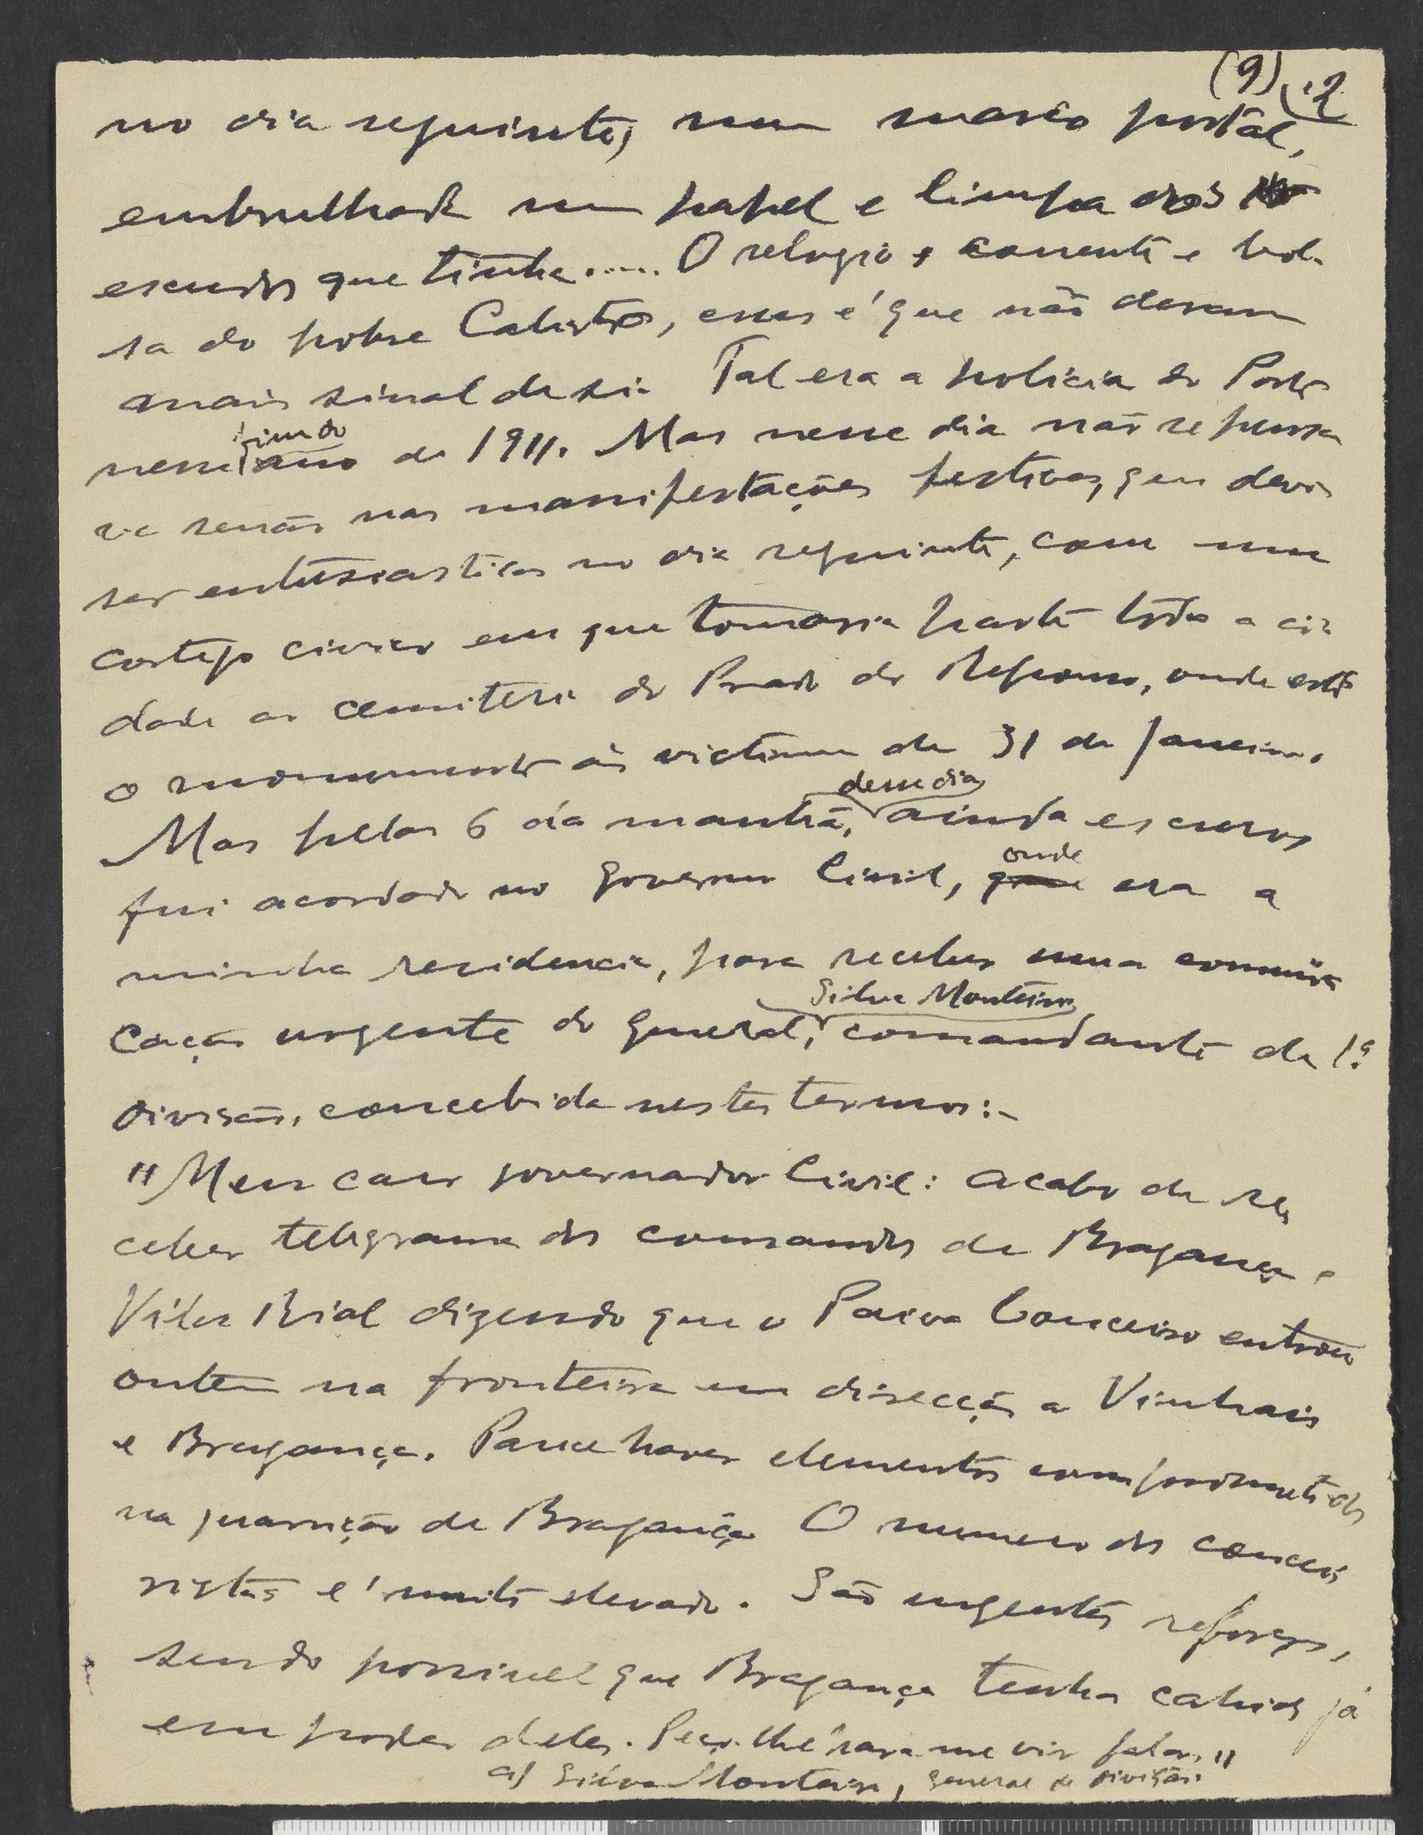 (9) 12
no dia seguinte, num marco postal,
embrulhada num papel e limpa dos
escudos que tinha..... O relogio e corrente e bol-
sa do pobre Calisto, esses é que não deram
mais sinal de si. Tal era a policia do Porto
nesse findo ano de 1911. Mas nesse dia não se pensa
va senão nas manifestações festivas, que devia
ser entusiasticas no dia seguinte, com um
cortejo civico em que tomaria parte toda a ci-
dade ao cemiterio do Prado do Repouso, onde está
o monumento ás victimas de 31 de Janeiro.
Mas pelas 6 da manhã, desse dia, ainda escuro,
fui acordado no Governo Civil, onde era a
minha residencia, para receber uma comuni
cação urgente do general, Silva Monteiro, comandante da 1ª
divisão, concebida nestes termos:-
"Meu caro governador Civil: Acabo de re
ceber telegrama dos comandos de Bragança e
Vila Rial dizendo que o Paiva Couceiro entrou
ontem na fronteira em direcção a Vinhais
e Bragança. Parece haver elementos comprometidos
na guarnição de Bragança. O numero dos couceei
ristas é muito elevado. São urgentes reforços,
sendo possivel que Bragança tenha cahido já
em poder deles. Peço-lhe para me vir falar."
a) Silva Monteiro, general de divisão.